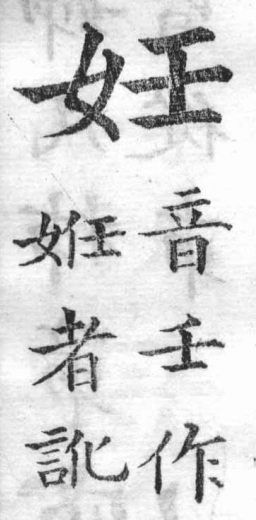 妊
音壬作
姙者訛